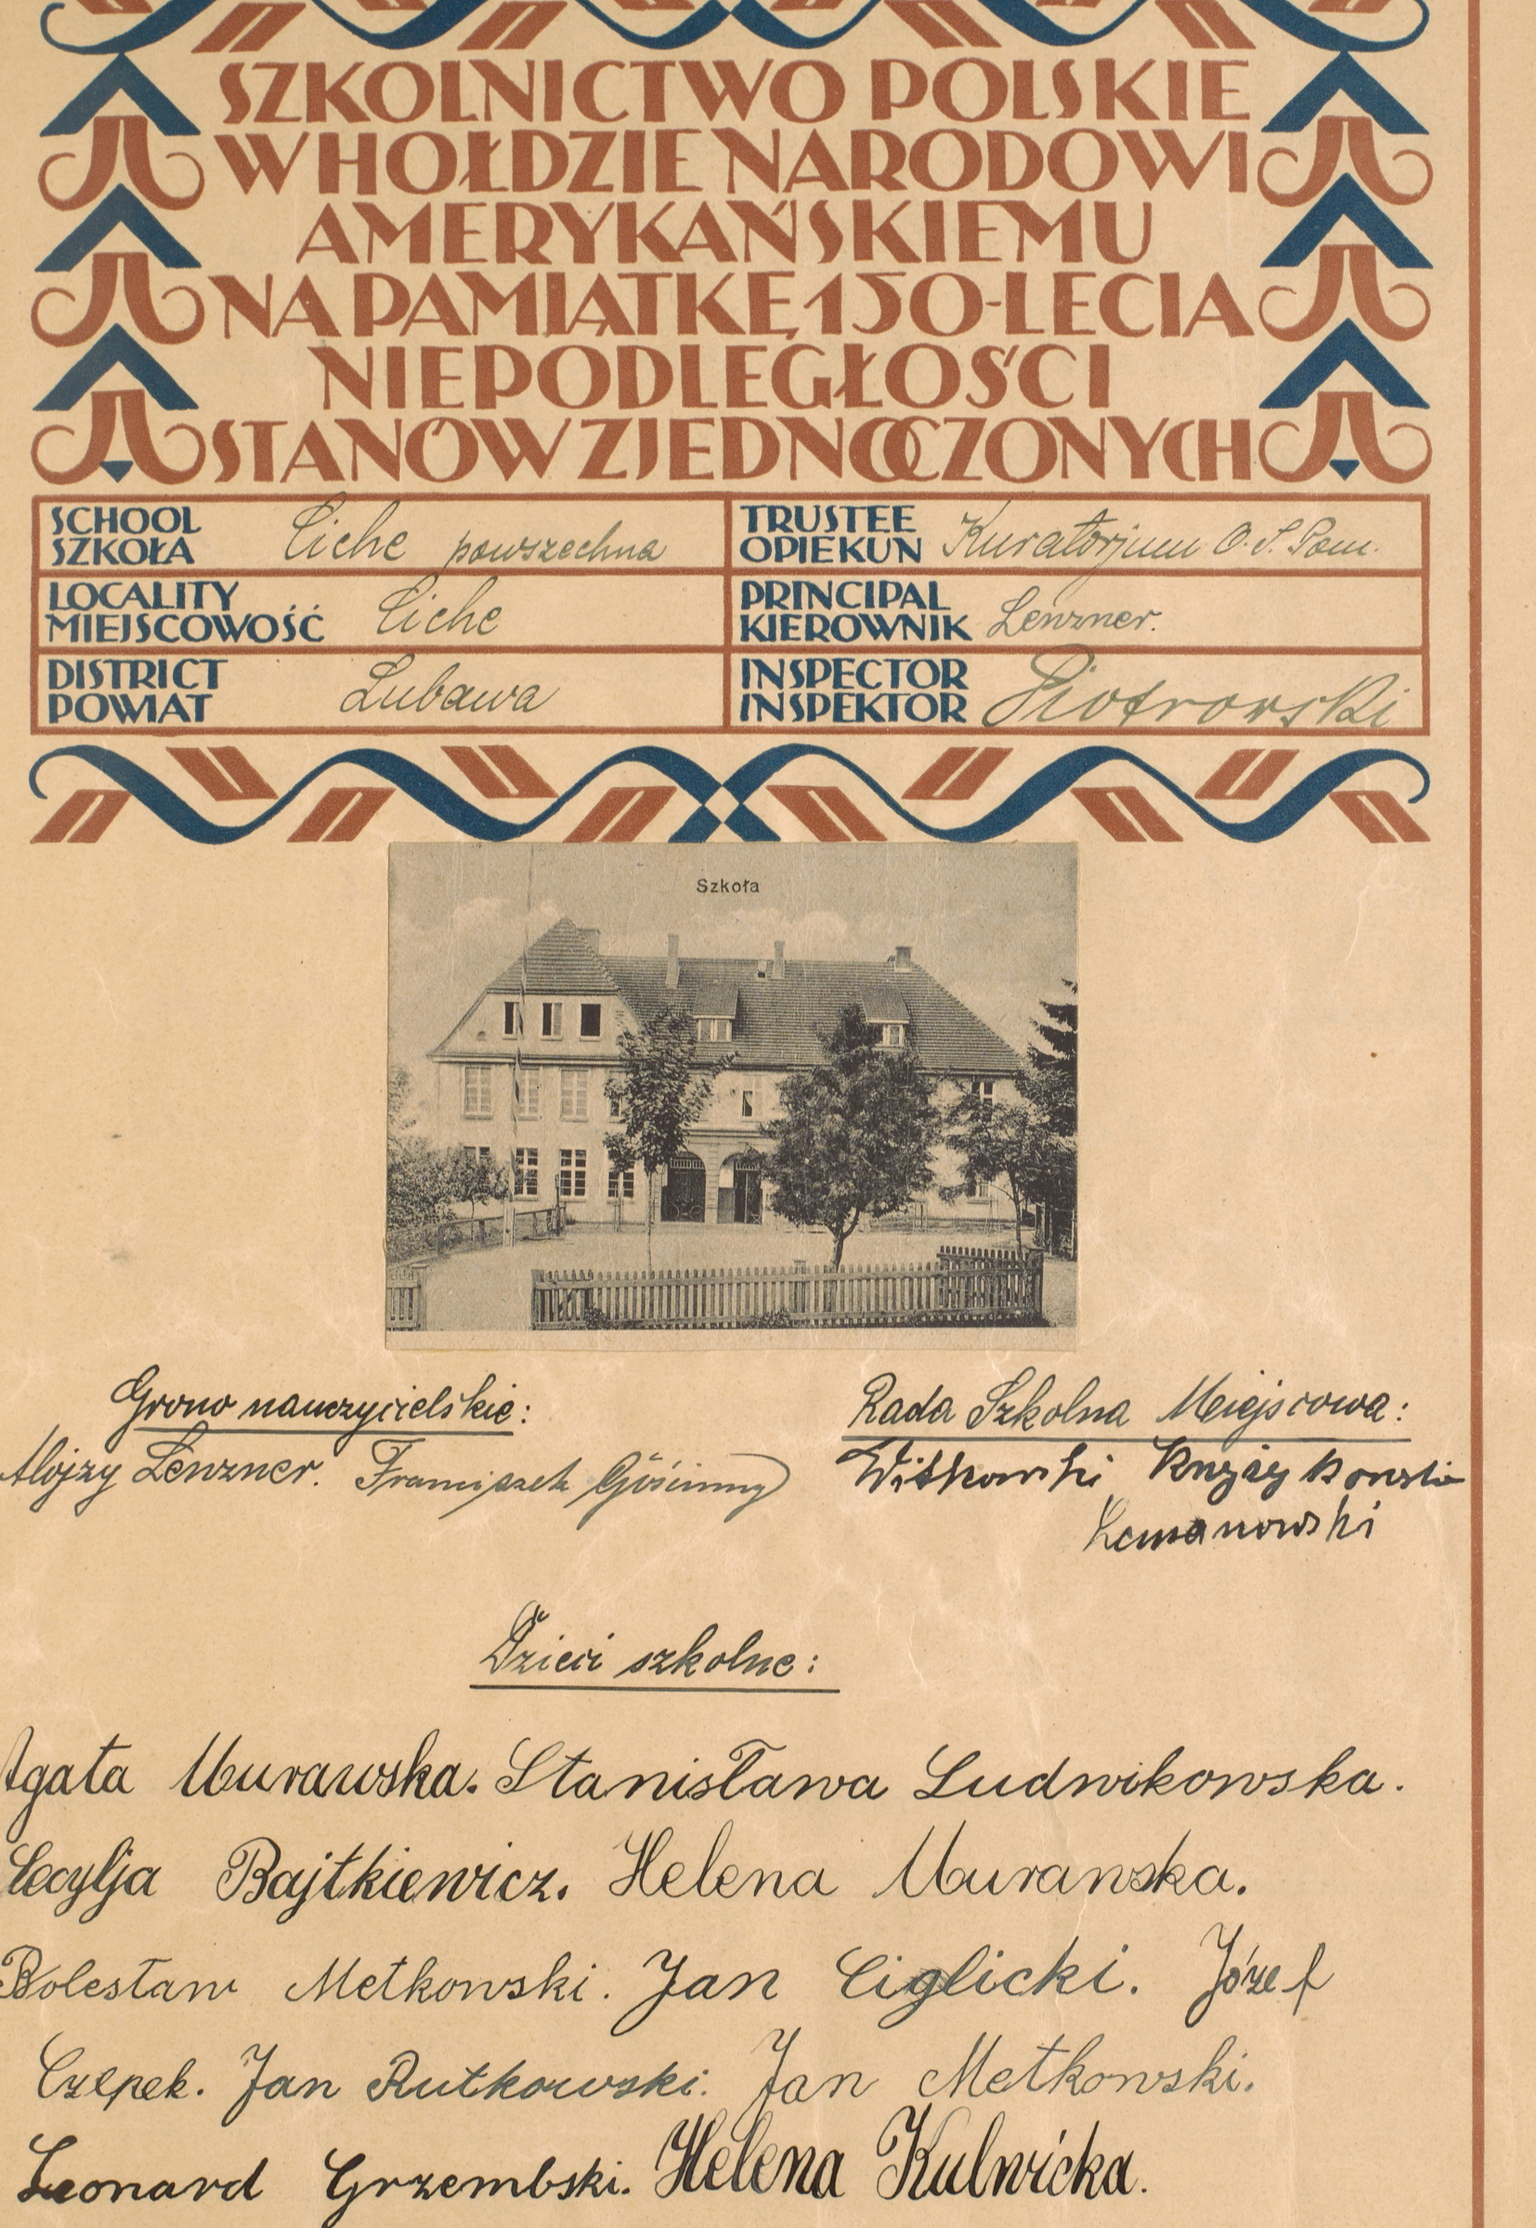 SZKOLNICTWO POLSKIE
W HOŁDZIE NARODOWI
AMERYKAŃSKIEMU
NA PAMIĄTKĘ 150-LECIA
NIEPODLEGŁOŚCI
STANÓW ZJEDNOCZONYCH
SCHOOL
SZKOŁA
Ciche powszechna
TRUSTEE
OPIEKUN
Kuratorjum O. S. Pom.
LOCALITY
MIEJSCOWOŚĆ
Ciche
PRINCIPAL
KIEROWNIK
Lenzner.
DISTRICT
POWIAT
Lubawa
INSPECTOR
INSPEKTOR
Piotrowski
Szkoła
Grono nauczycielskie:
Alojzy Lenzner. Franciszek Gościnny
Rada Szkolna Miejscowa:
Witkowski Krzyżykowski
Lemanowski
Dzieci szkolne:
Agata Murawska. Stanisława Ludwikowska.
Cecylja Bajtkiewicz. Helena Murawska.
Bolesław Metkowski. Jan Ciglicki. Józef
Czepek. Jan Rutkowski. Jan Metkowski.
Leonard Grzembski. Helena Kulwicka.